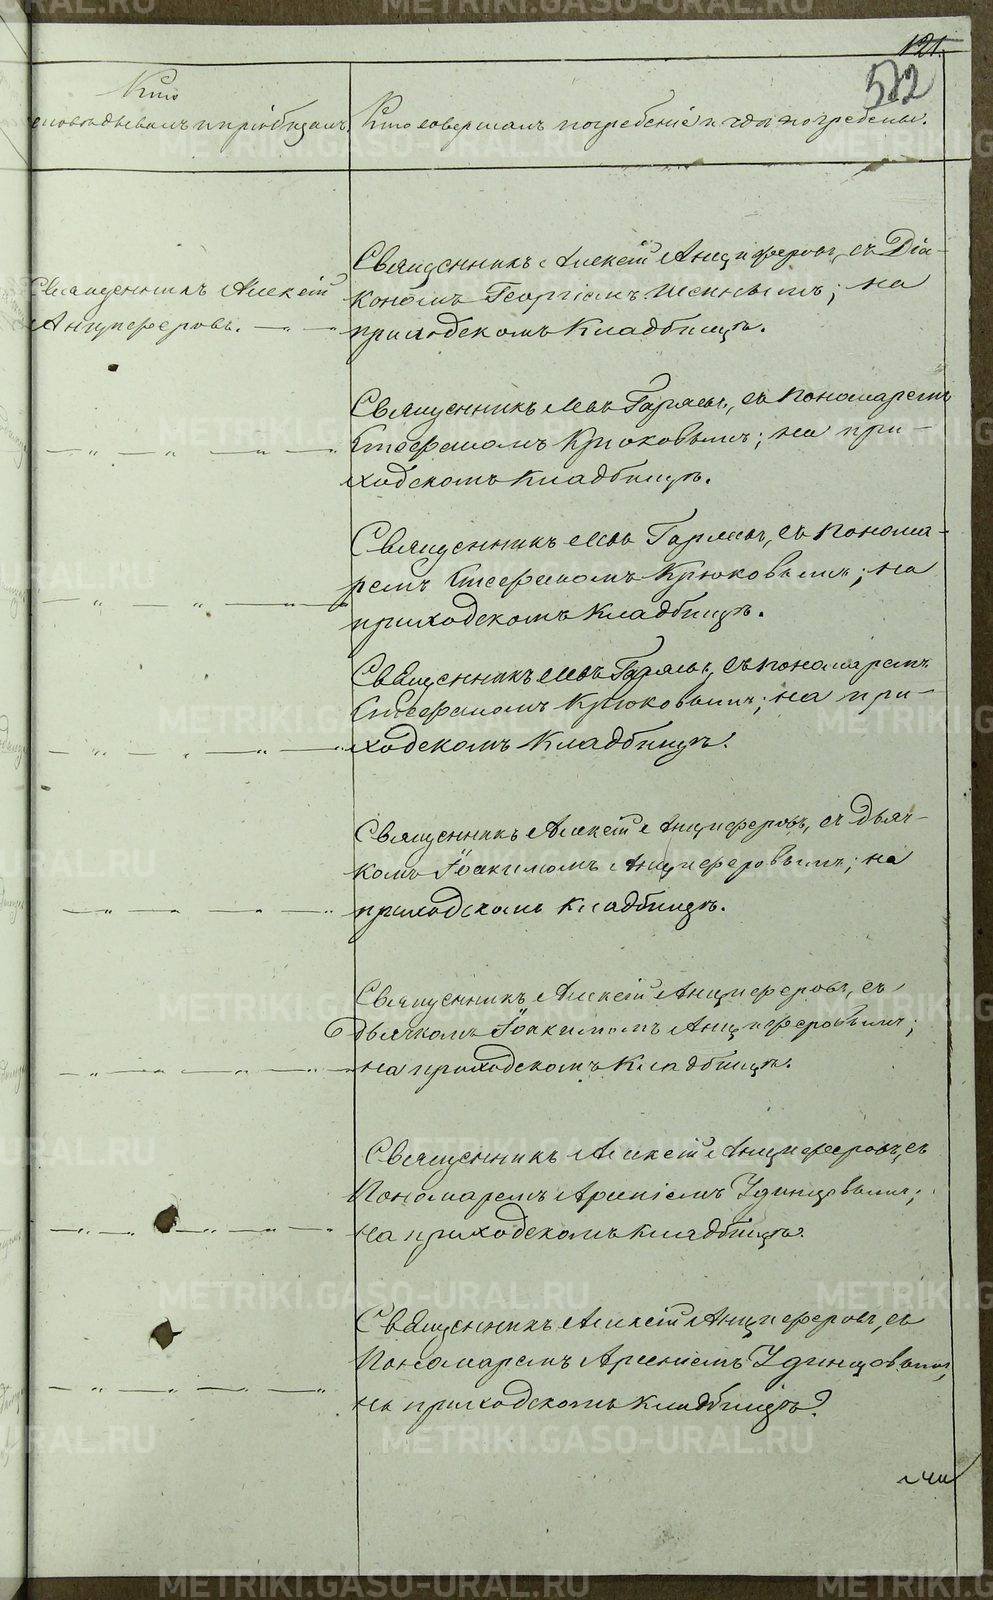 121.
522
Кто
исповѣдывалъ и пріобщалъ
Кто совершалъ погребеніе и гдѣ погребены.
Священникъ Алексій
Анциферовъ.
Священникъ Алексій Анциферовъ, съ Діа-
кономъ Георгіемъ; на
приходскомъ кладбищѣ.
Священникъ Левъ Гаряевъ, съ Пономаремъ
Стефаномъ Крюковымъ; на при-
ходскомъ кладбищѣ.
Священникъ Левъ Гаряевъ, съ Понома-
ремъ Стефаномъ Крюковымъ; на
приходскомъ кладбищѣ.
Священникъ Левъ Гаряевъ, съ Пономаремъ
Стефаномъ Крюковымъ; на при-
ходскомъ кладбищѣ.
Священникъ Алексій Анциферовъ, съ Дьяч-
комъ Іоакимомъ Анциферовымъ; на
приходскомъ кладбищѣ.
Священникъ Алексій Анциферовъ, съ
Дьячкомъ Іоакимомъ Анциферовымъ;
на приходскомъ кладбищѣ.
Священникъ Алексій Анциферовъ, съ
Пономаремъ Арсеніемъ Удинцовымъ;
на приходскомъ кладбищѣ.
Священникъ Алексій Анциферовъ, съ
Пономаремъ Арсеніемъ Удинцовымъ,
на приходскомъ кладбищѣ.
METRIKI.GASO-URAL.RU